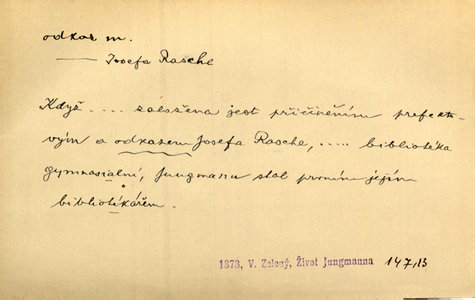 odkaz m.
—— Josefa Rasche
Když .... založena jest přičiněním prefekto-
vým a odkazem Josefa Rasche, ..... bibliotéka
gymnasialní, Jungmann stal prvním jejím
bibliotékářem.
1873, V. Zelený, Život Jungmanna 147,13